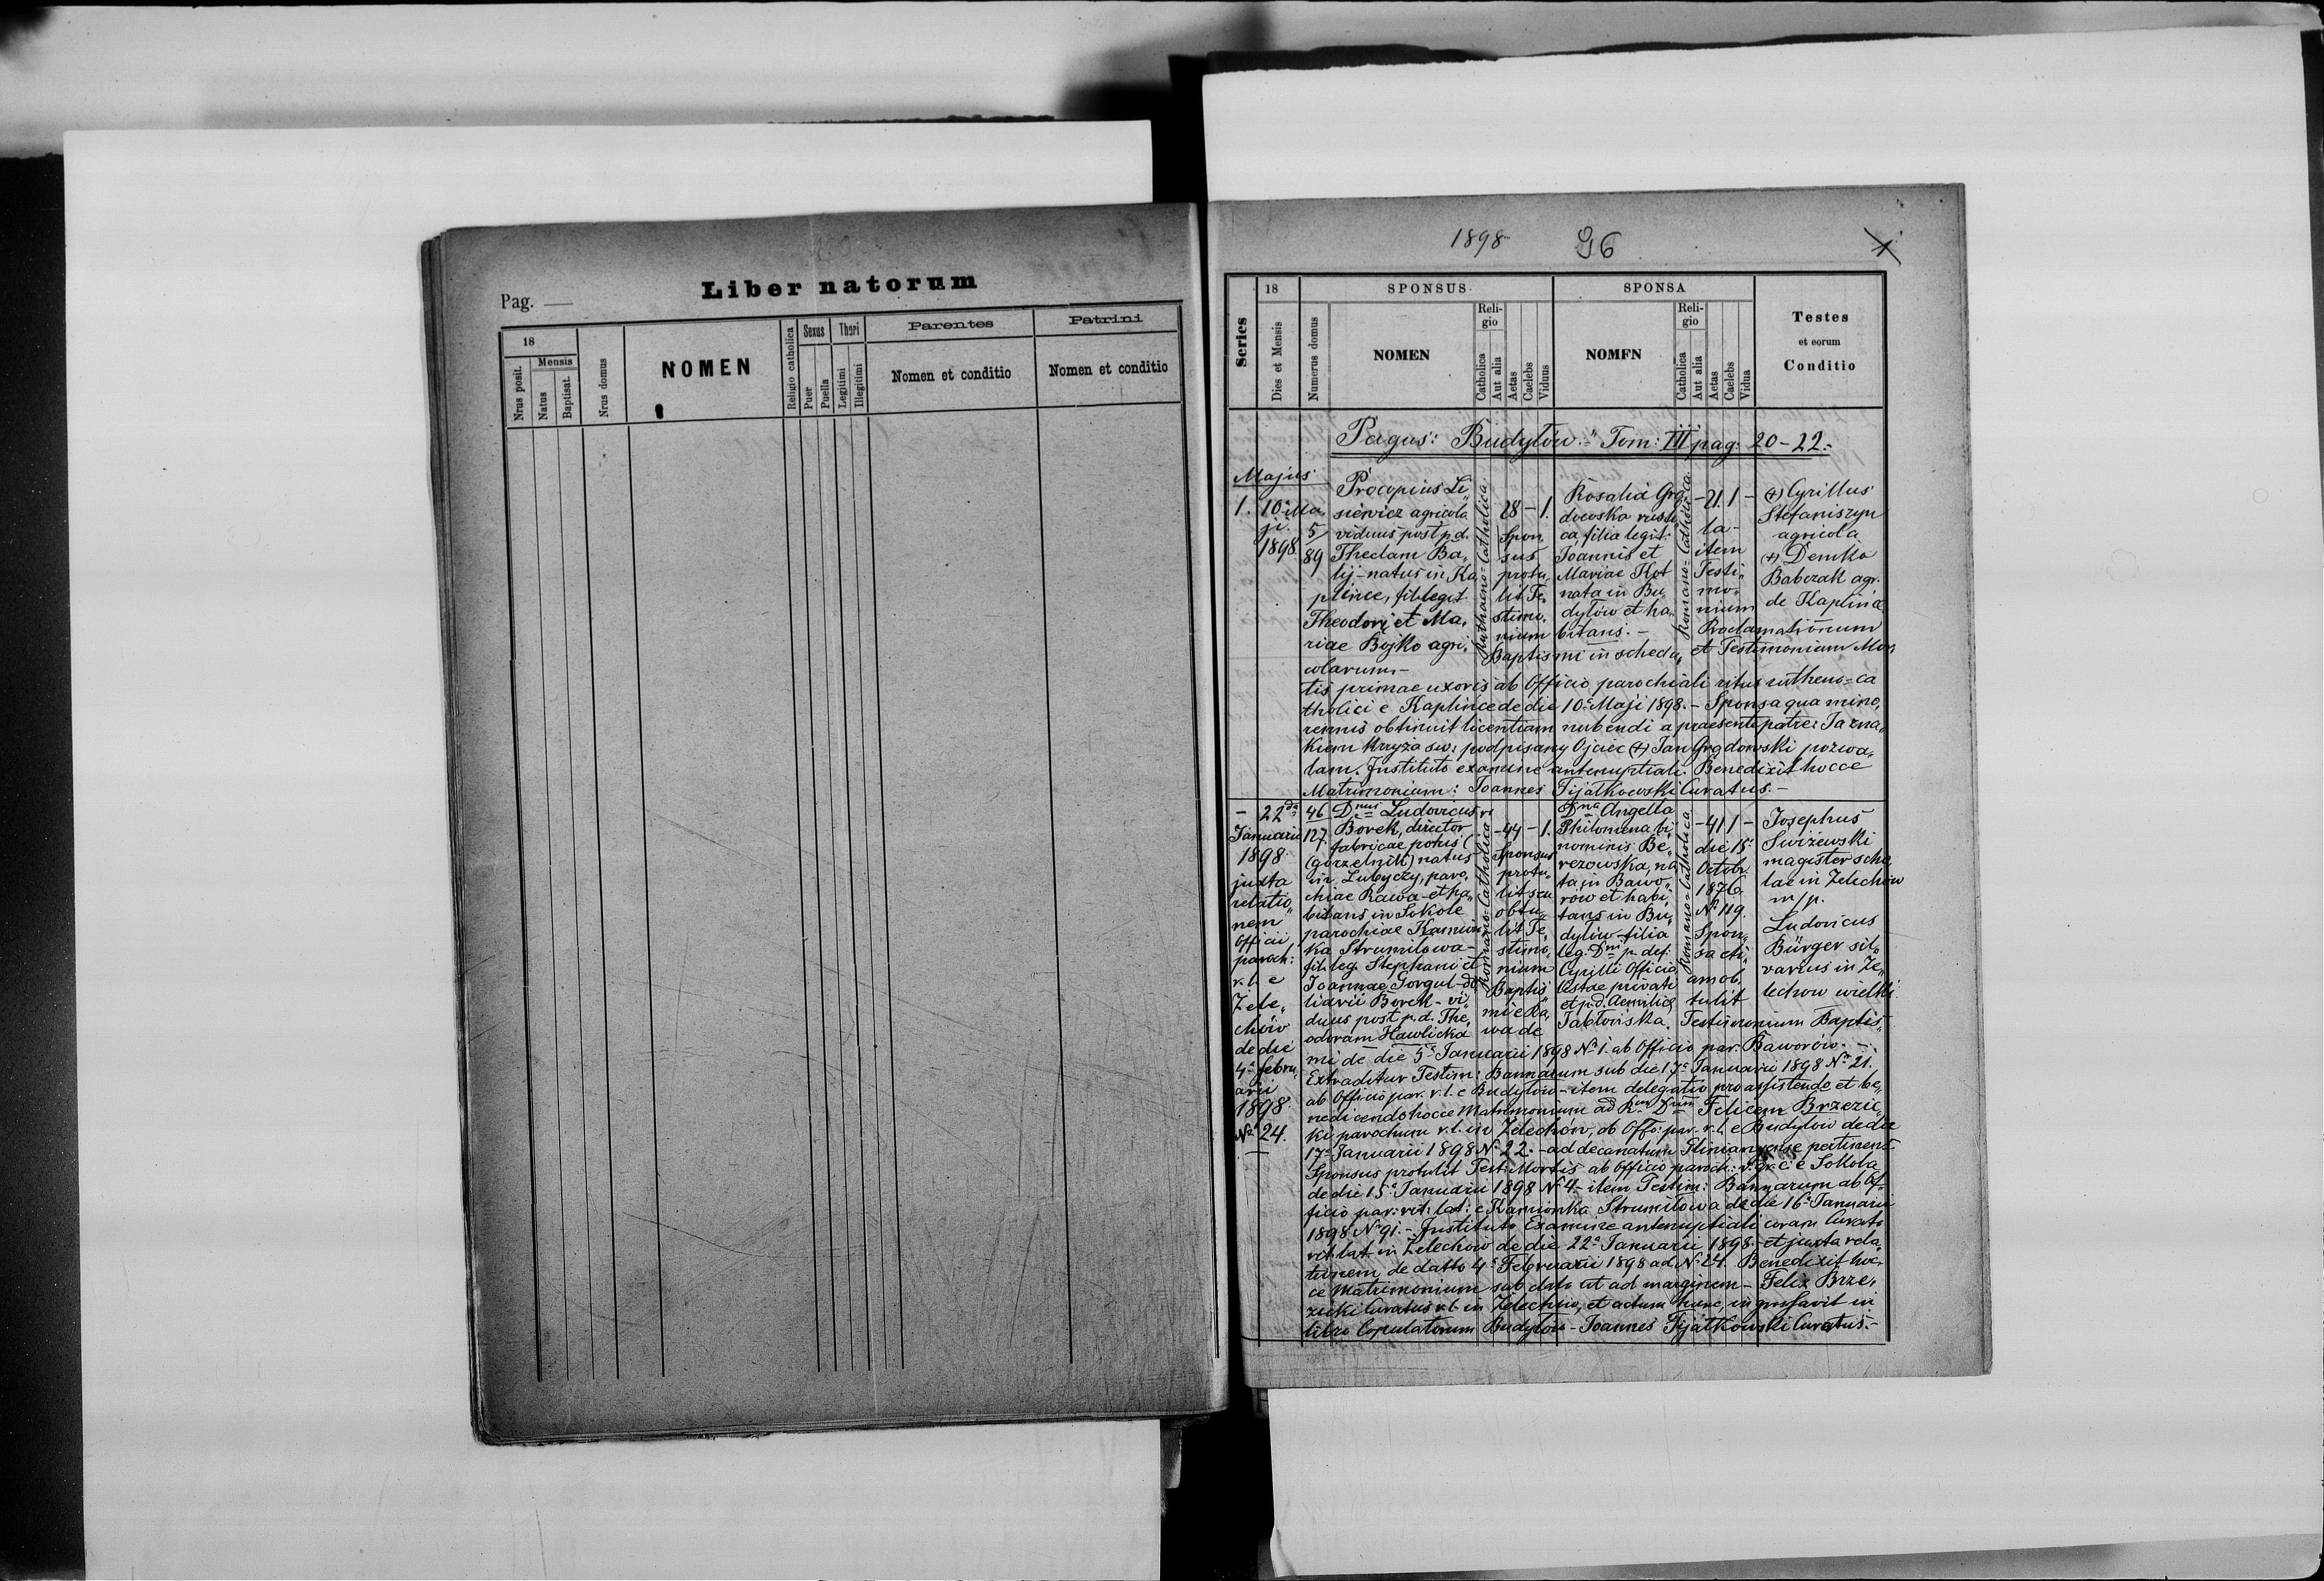 Pag. —
Liber natorum
18
Mensis
Nrus posit.
Natus
Baptisat.
Nrus domus
NOMEN
Religio catholica
Sexus
Puer
Puella
Thori
Legitimi
Illegitimi
Parentes
Nomen et conditio
Patrini
Nomen et conditio
1898
96
1
Series
18
Dies et Mensis
Numerus domus
SPONSUS
NOMEN
Reli-
gio
Catholica
Aut alia
Aetas
Caelebs
Viduus
SPONSA
NOMFN
Reli-
gio
Catholica
Aut alia
Aetas
Caelebs
Vidua
Testes
et eorum
Conditio
Pagus: Budyłów.- Tom: III pag: 20-22.-
Majus
1. 10 Ma„
ji
1898.
5
89
Procopius Li„
siewicz agricola
viduus post p.d.
Theclam Ba„
lij - natus in Ka„
plince, fil. legit.
Theodori et Ma„
riae Bojko agri„
colarum.-
Ruthaeno=Catholica
28 - 1.
Spon„
sus
protu„
lit Te„
stimo„
nium
Rosalia Grą„
dowska rusti„
ca, filia legit:
Joannis et
Mariae Kot
nata in Bu„
dyłów et ha„
bitans.-
Romano=Catholica
- 21 1 -
la-
item
Testi„
mo„
nium
(+) Cyrillus
Stefaniszyn
agricola
(+) Demko
Babczak agr.
de Kaplince
Proclamationum
Baptismi in scheda, et Testimonium Mor„
tis primae uxoris ab Officio parochiali ritus rutheno=ca
tholici e Kaplince de die 10ᵃ Maji 1898.- Sponsa qua mino„
rennis obtinuit licentiam nubendi a praesente patre: Ja zna„
kiem Krzyża św: podpisany Ojciec (+) Jan Grądowski pozwa„
lam. Instituto examine antenuptiali Benedixit hocce
Matrimonium: Joannes Fijałkowski Curatus.-
- 22da
Januarii
1898.
juxta
relatio„
nem
Officii
paroch:
r.l. e
Zele„
chów
de die
4ᵃ febru„
arii
1898
Nº 24.
46
127.
Dnus Ludovicus
Borek, director
fabricae potus (
(gorzelnik) natus
in Lubyczy, paro„
chiae Rawa - et ha„
bitans in Sokole
parochiae Kamion„
ka Strumiłowa -
fil. leg. Stephani et
Joannae Gorgul
Borek - vi„
duus post p.d. The„
odoram Hawlicka
Romano=Catholica
-44 - 1.
Sponsus
protu„
lit seu
obtu„
lit Te„
stimo„
nium
Baptis„
mi e Ra„
wa de
Dna Angella
Philomena bi„
nominis Be„
rezowska, na„
ta in Bawo„
rów et habi„
tans in Bu„
dyłów - filia
leg. Dni p. def.
Cyrilli Officia„
listae privati
et p.d. Aemiliae
Jabłońska.
Romano=Catholica
- 41 1 -
die 15ᵃ
Octobr.
1876.
Nº 119.
Spon„
sa eti„
am ob„
tulit
Josephus
Swiżewski
magister scho
lae in Zelechów
m/p.
Ludovicus
Bürger sil„
varius in Że„
lechow wielki.
Testimonium Baptis„
mi de die 5ᵃ Januarii 1898 Nº 1. ab Officio par. Baworów.-
Extraditur Testim: Bannarum sub die 17ᵃ Januarii 1898 Nº 21.
ab Officio par. r.l. e Budyłów - item delegatio pro assistendo et be„
nedicendo hocce Matrimonium ad Rum Dnum Felicem Brzezic„
ki parochum r.l. in Zelechów, ab Offo: par. r.l. e Budyłów de die
17ᵃ Januarii 1898 Nº 22. - ad decanatum pertinens
Sponsus protulit Test: Mortis ab Officio paroch: e Sokola
de die 15ᵃ Januarii 1898 Nº 4 - item Testim: Bannarum ab Of„
ficio par: rit: lat: e Kamionka Strumiłowa de die 16ᵃ Januarii
1898 Nº 91.- Instituto Examine antenuptiali coram Curato
rit. lat. in Zelechów de die 22ᵃ Januarii 1898.- et juxta rela„
tionem de datto 4ᵃ Februarii 1898 ad Nº 24. Benedixit hoc„
ce Matrimonium sub dato ut ad marginem - Felix Brze„
zicki Curatus r.l. in Zelechów, et actum hunc, ingrossavit in
libro Copulatorum Budyłów - Joannes Fijałkowski Curatus.-